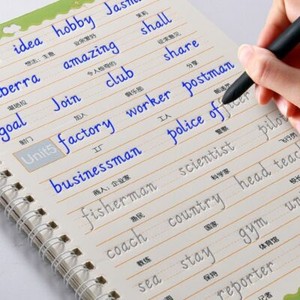 idea hobby Jasm
想法；主意 业余爱好
erra amazing shall
令人惊奇的
goal Join club share
Unit5 factory worker postman
工厂 工人
businessman police officer
商人；企业家 警察
fisherman scientist pilot
渔民 科学家
coach country head teacher
教练 国家
sea stay gym
海 保持 体育馆
reporter